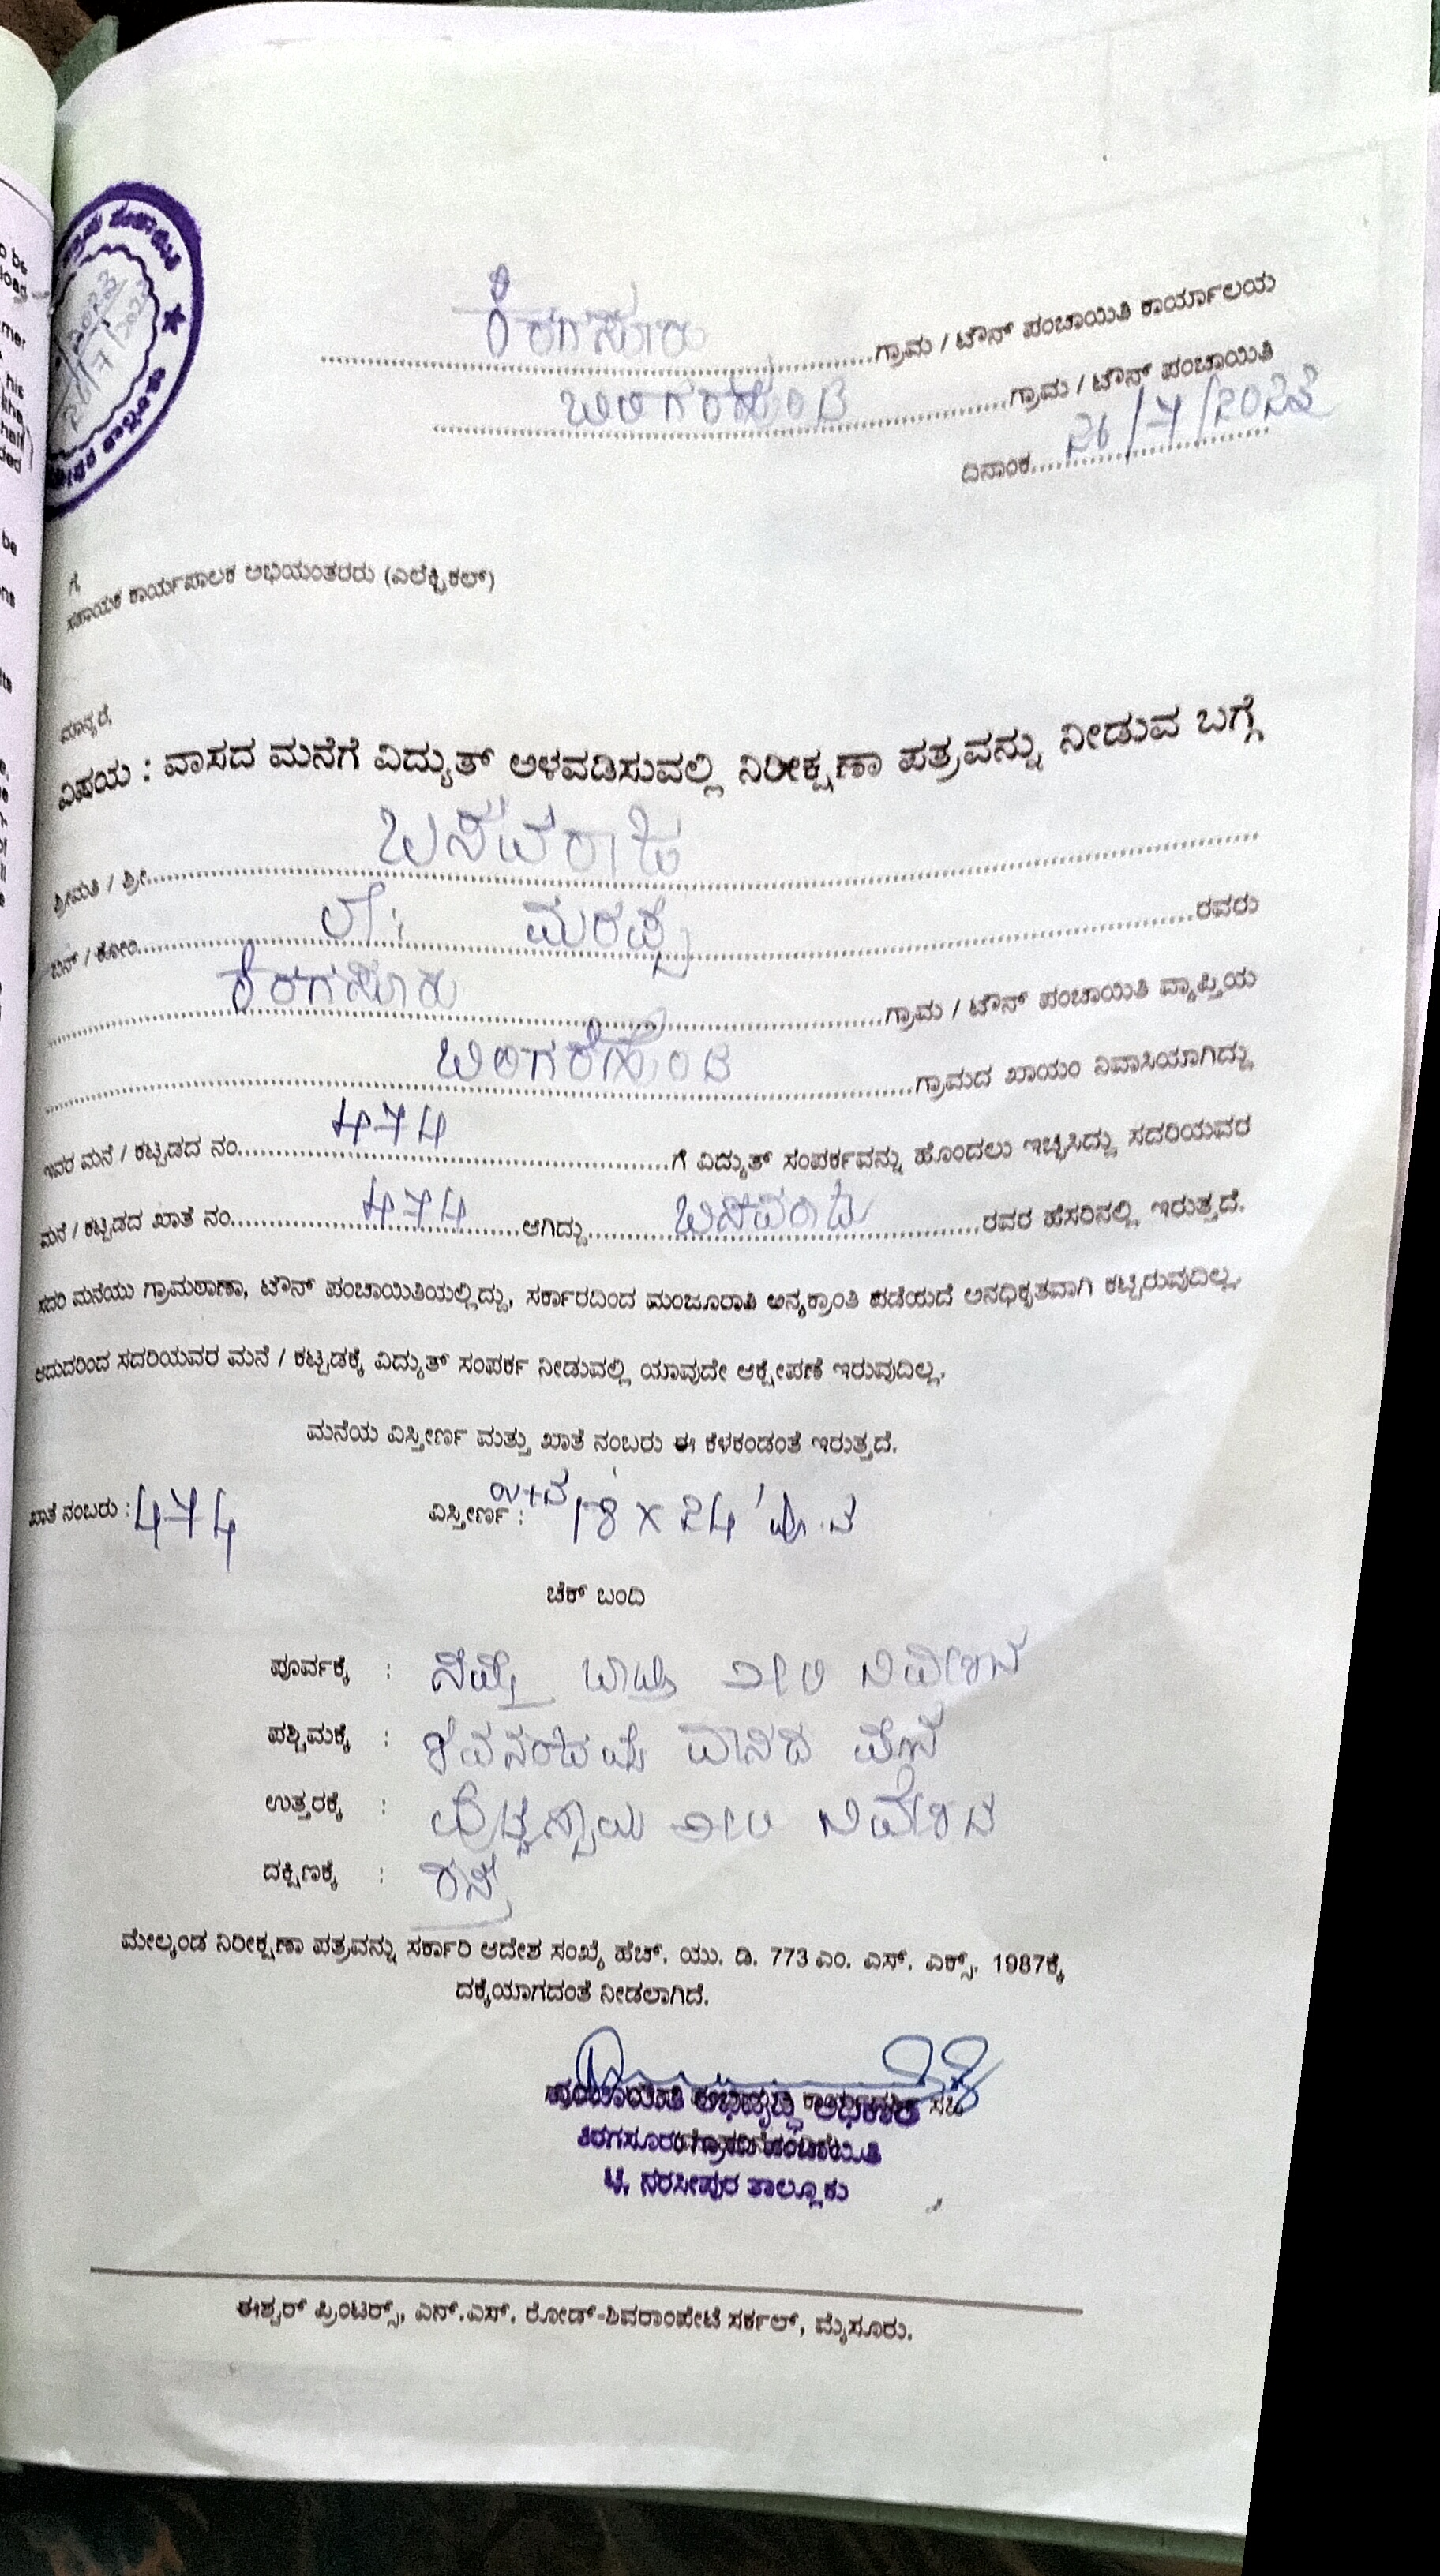 ಕಿರಗಸೂರು ಗ್ರಾಮ / ಟೌನ್ ಪಂಚಾಯಿತಿ ಕಾರ್ಯಾಲಯ
ಗ್ರಾಮ / ಟೌನ್ ಪಂಚಾಯಿತಿ
ದಿನಾಂಕ 26/7/2023
ಗೆ,
ಸಹಾಯಕ ಕಾರ್ಯಪಾಲಕ ಅಭಿಯಂತರರು (ಎಲೆಕ್ಟ್ರಿಕಲ್)
ಮಾನ್ಯರೆ,
ವಿಷಯ : ವಾಸದ ಮನೆಗೆ ವಿದ್ಯುತ್ ಅಳವಡಿಸುವಲ್ಲಿ ನಿರೀಕ್ಷಣಾ ಪತ್ರವನ್ನು ನೀಡುವ ಬಗ್ಗೆ
ಶ್ರೀಮತಿ / ಶ್ರೀ ಬಸವರಾಜು
ಬಿನ್ / ಕೋಂ ಲೇ: ಮರಪ್ಪ ರವರು
ಕಿರಗಸೂರು ಗ್ರಾಮ / ಟೌನ್ ಪಂಚಾಯಿತಿ ವ್ಯಾಪ್ತಿಯ
ಗ್ರಾಮದ ಖಾಯಂ ನಿವಾಸಿಯಾಗಿದ್ದು
ಇವರ ಮನೆ / ಕಟ್ಟಡದ ನಂ 474 ಗೆ ವಿದ್ಯುತ್ ಸಂಪರ್ಕವನ್ನು ಹೊಂದಲು ಇಚ್ಛಿಸಿದ್ದು ಸದರಿಯವರ
ಮನೆ / ಕಟ್ಟಡದ ಖಾತೆ ನಂ 474 ಆಗಿದ್ದು ಬಸವರಾಜು ರವರ ಹೆಸರಿನಲ್ಲಿ ಇರುತ್ತದೆ.
ಸದರಿ ಮನೆಯು ಗ್ರಾಮಠಾಣಾ, ಟೌನ್ ಪಂಚಾಯಿತಿಯಲ್ಲಿದ್ದು, ಸರ್ಕಾರದಿಂದ ಮಂಜೂರಾತಿ ಅನ್ಯಕ್ರಾಂತಿ ಪಡೆಯದೆ ಅನಧಿಕೃತವಾಗಿ ಕಟ್ಟಿರುವುದಿಲ್ಲ.
ಆದುದರಿಂದ ಸದರಿಯವರ ಮನೆ / ಕಟ್ಟಡಕ್ಕೆ ವಿದ್ಯುತ್ ಸಂಪರ್ಕ ನೀಡುವಲ್ಲಿ ಯಾವುದೇ ಆಕ್ಷೇಪಣೆ ಇರುವುದಿಲ್ಲ.
ಮನೆಯ ವಿಸ್ತೀರ್ಣ ಮತ್ತು ಖಾತೆ ನಂಬರು ಈ ಕೆಳಕಂಡಂತೆ ಇರುತ್ತದೆ.
ಖಾತೆ ನಂಬರು : 474 ವಿಸ್ತೀರ್ಣ : 18 x 24'
ಚೆಕ್ ಬಂದಿ
ಪೂರ್ವಕ್ಕೆ : ನಿವೇಶನ
ಪಶ್ಚಿಮಕ್ಕೆ : ವಾಸದ ಮನೆ
ಉತ್ತರಕ್ಕೆ : ನಿವೇಶನ
ದಕ್ಷಿಣಕ್ಕೆ : ರಸ್ತೆ
ಮೇಲ್ಕಂಡ ನಿರೀಕ್ಷಣಾ ಪತ್ರವನ್ನು ಸರ್ಕಾರಿ ಆದೇಶ ಸಂಖ್ಯೆ ಹೆಚ್. ಯು. ಡಿ. 773 ಎಂ. ಎಸ್. ಎಕ್ಸ್. 1987ಕ್ಕೆ
ದಕ್ಕೆಯಾಗದಂತೆ ನೀಡಲಾಗಿದೆ.
ಪಂಚಾಯಿತಿ ಅಭಿವೃದ್ಧಿ ಅಧಿಕಾರಿ
ಕಿರಗಸೂರು ಗ್ರಾಮ ಪಂಚಾಯಿತಿ
ಟಿ. ನರಸೀಪುರ ತಾಲ್ಲೂಕು
ಈಶ್ವರ್ ಪ್ರಿಂಟರ್ಸ್, ಎನ್.ಎಸ್. ರೋಡ್-ಶಿವರಾಂಪೇಟೆ ಸರ್ಕಲ್, ಮೈಸೂರು.